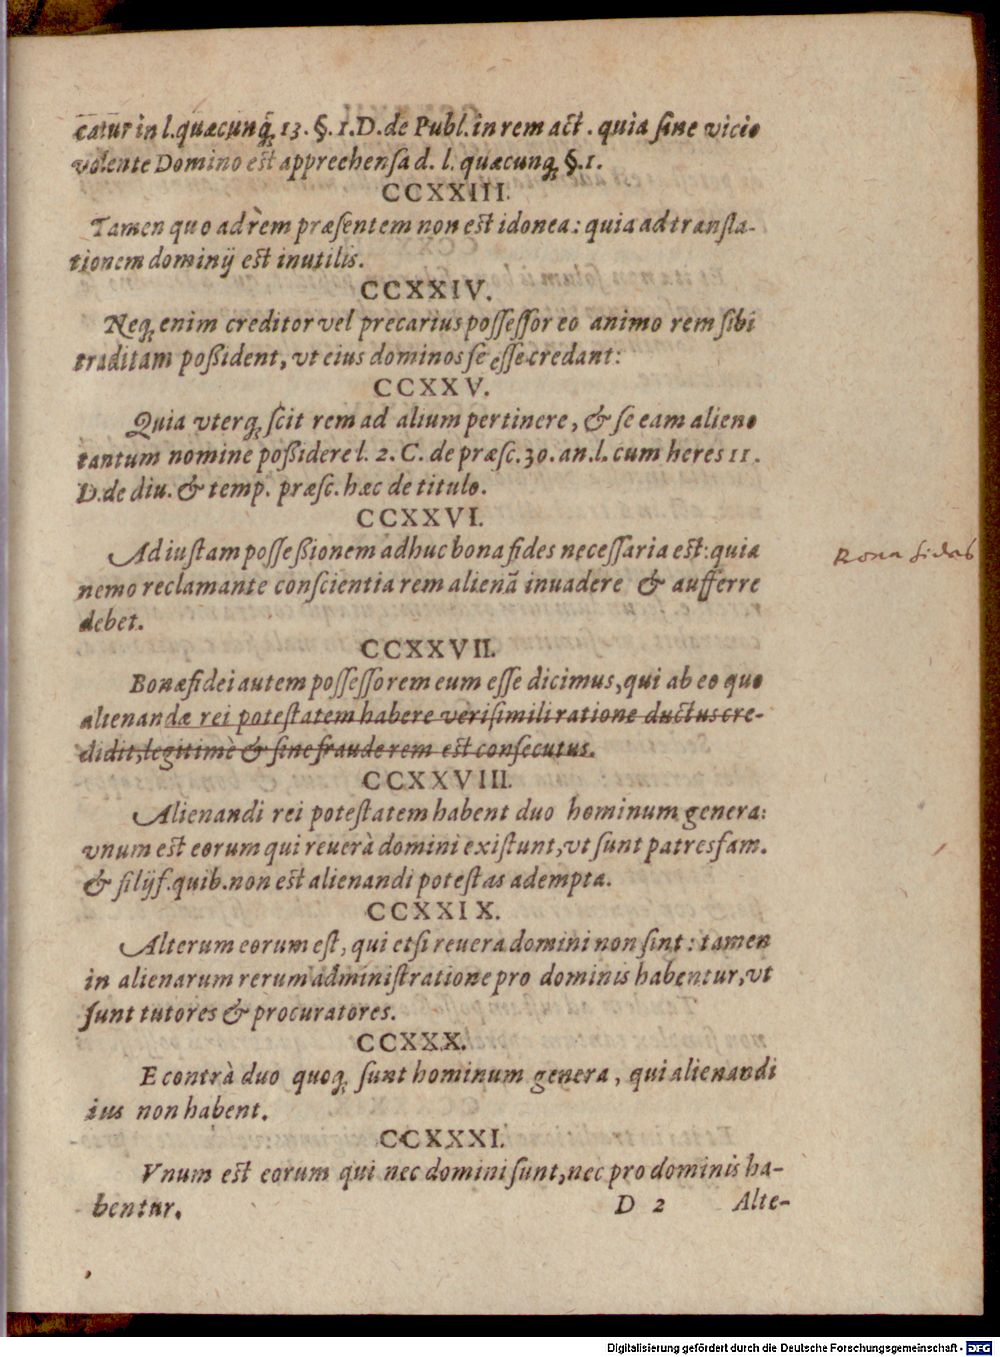 catur in l. quæcunq́; 13. §. 1. D. de Publ. in rem act. quia sine vicio
volente Domino est apprehensa d. l. quæcunq; §. 1.
CCXXIII.
Tamen quo ad rem præsentem non est idonea: quia ad transla-
tionem dominij est inutilis.
CCXXIV.
Neq; enim creditor vel precarius possessor eo animo rem sibi
traditam poßident, vt eius dominos se esse credant:
CCXXV.
Quia vterq; scit rem ad alium pertinere, & se eam alieno
tantum nomine poßidere l. 2. C. de præsc. 30. an. l. cum heres 11.
D. de diu. & temp. præsc. hæc de titulo.
CCXXVI.
Ad iustam posseßionem adhuc bona fides necessaria est: quia
nemo reclamante conscientia rem alienā inuadere & aufferre
debet.
Bona fides
CCXXVII.
Bonæ fidei autem possessorem eum esse dicimus, qui ab eo quo
alienandæ rei potestatem habere verisimili ratione ductus cre-
didit, legitimè & sine fraude rem est consecutus.
CCXXVIII.
Alienandi rei potestatem habent duo hominum genera:
vnum est eorum qui reuerà domini existunt, vt sunt patresfam.
& filijf. quib. non est alienandi potestas adempta.
CCXXIX.
Alterum eorum est, qui etsi reuera domini non sint: tamen
in alienarum rerum administratione pro dominis habentur, vt
sunt tutores & procuratores.
CCXXX.
E contrà duo quoq; sunt hominum genera, qui alienandi
ius non habent.
CCXXXI.
Vnum est eorum qui nec domini sunt, nec pro dominis ha-
bentur.
D 2 Alte-
Digitalisierung gefördert durch die Deutsche Forschungsgemeinschaft - DFG